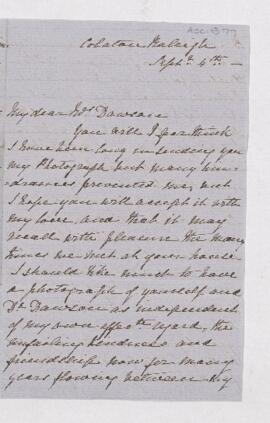 Acc. 1377
Colaton Raleigh
Septr. 4th —
My dear Mrs Dawson
You will I fear think
I have been long in sending you
my Photograph but many hin-
drances prevented me, but
I hope you will accept it with
my love, and that it may
recall with pleasure the many
times we met at your house
I should like much to have
a photograph of yourself and
Dr Dawson as independent
of my own regard, the
unfailing kindness and
friendship now for many
years flowing between